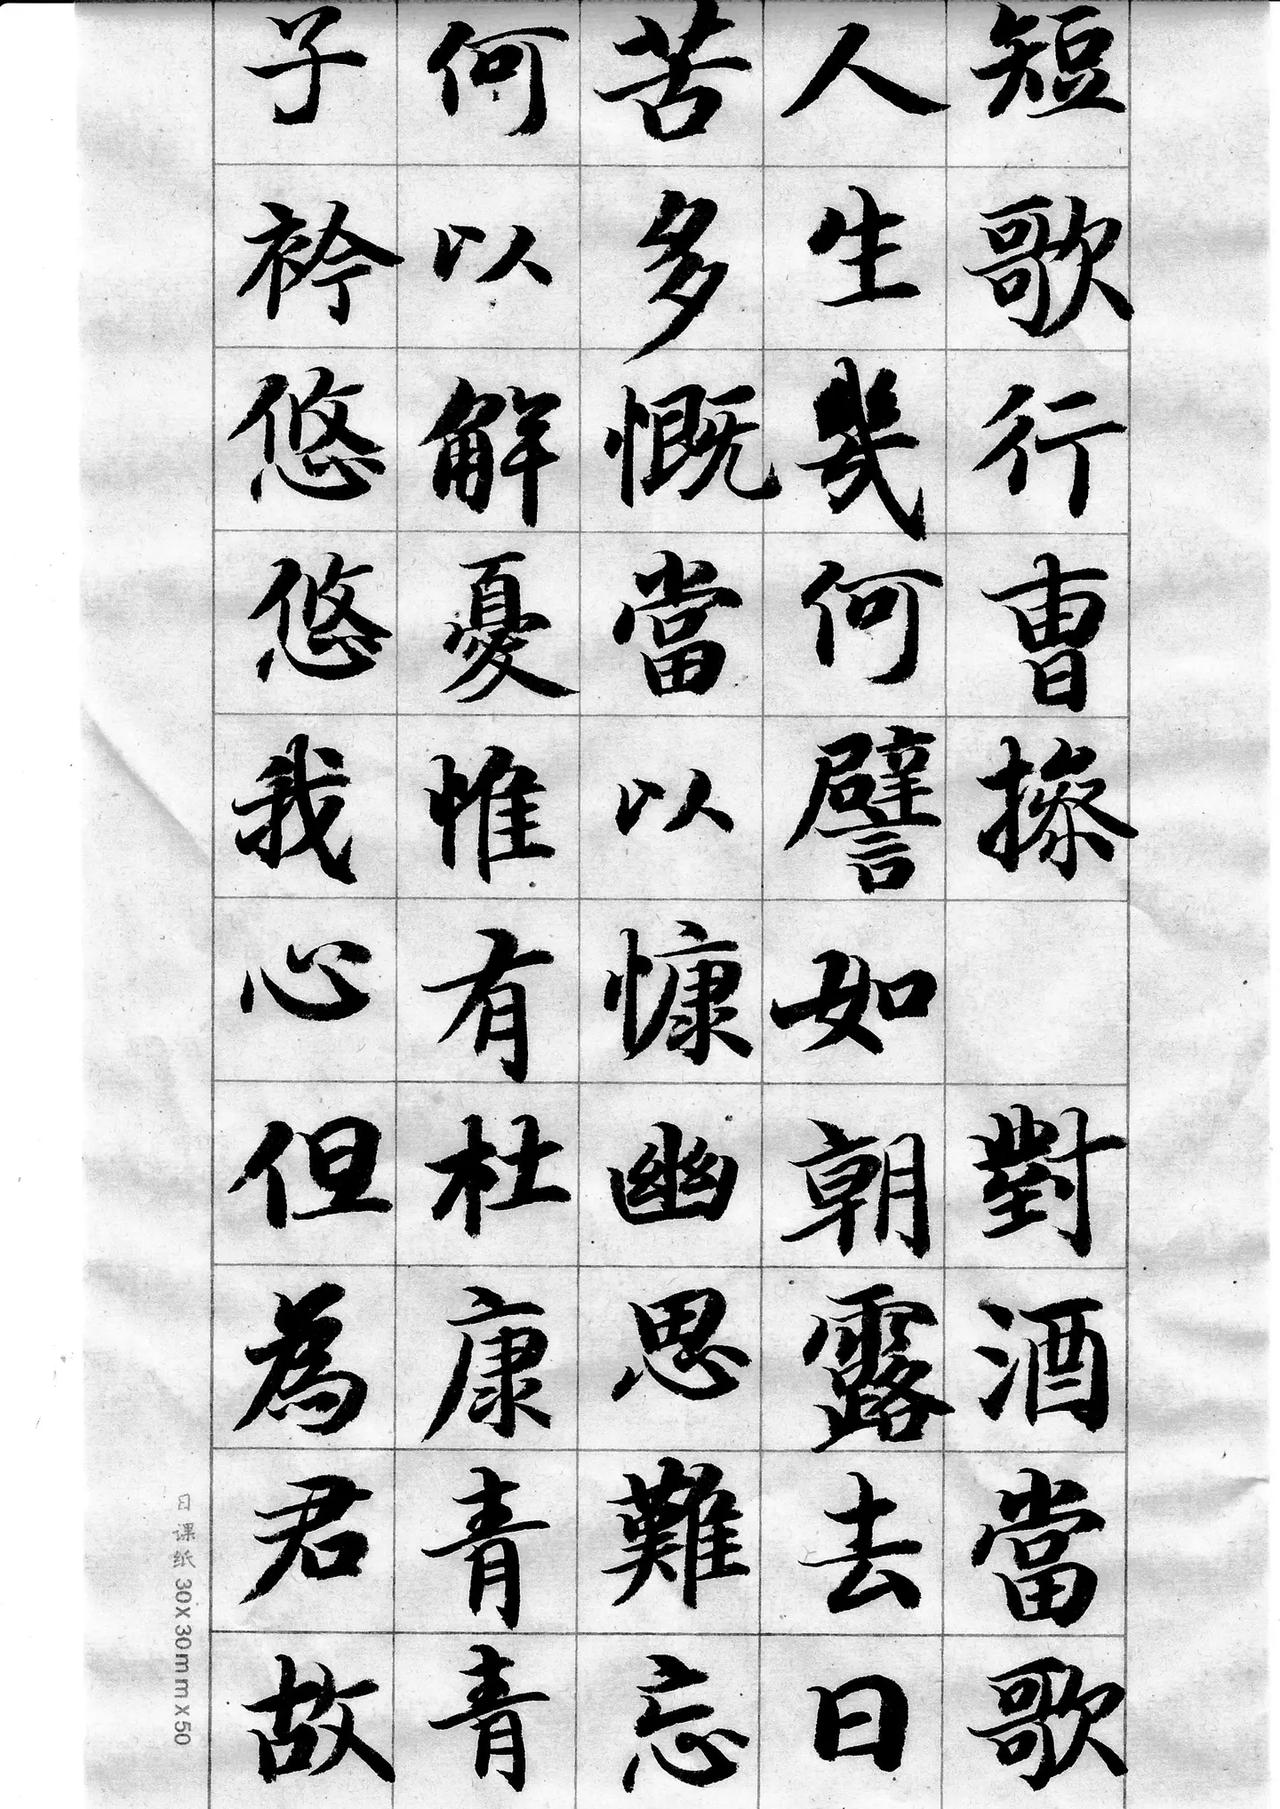 短歌行曹操 對酒當歌
人生幾何譬如朝露去日
苦多慨當以慷幽思難忘
何以解憂惟有杜康青青
子衿悠悠我心但為君故
日课纸 30x30mmx50